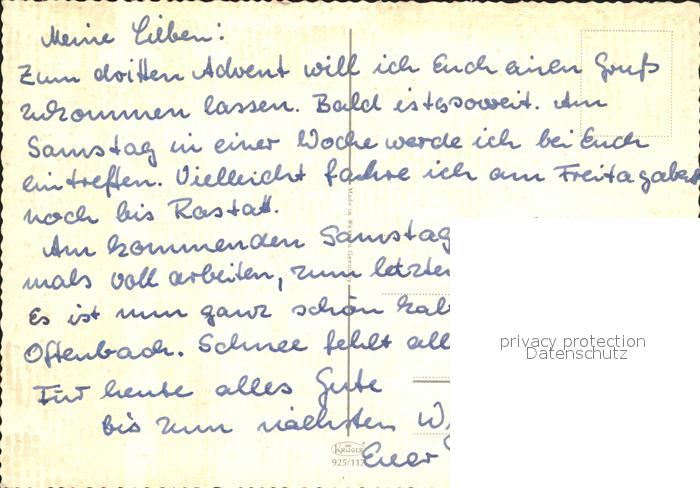 Meine Lieben!
Zum dritten Advent will ich Euch einen Gruß
zukommen lassen. Bald ist es soweit. Am
Samstag in einer Woche werde ich bei Euch
eintreffen. Vielleicht fahre ich am Freitagabend
noch bis Rastatt.
Am kommenden Samstag
mals voll arbeiten, zum letzten
Es ist nun ganz schön kal
Offenbach. Schnee fehlt all
Für heute alles Gute
bis zum nächsten
Euer
KRÜGER
925/117
privacy protection
Datenschutz